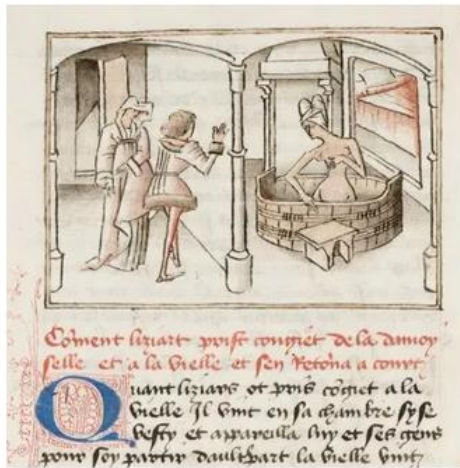 Com̄ent liziart prist congiet de la damoy
selle et a la vielle et sen Retōna a court
Quant liziars ot pris cōgiet a la
vielle Il vint en sa chambre sy se
vesty et appareilla luy et ses gens
pour soy partir daultpart la vielle vint